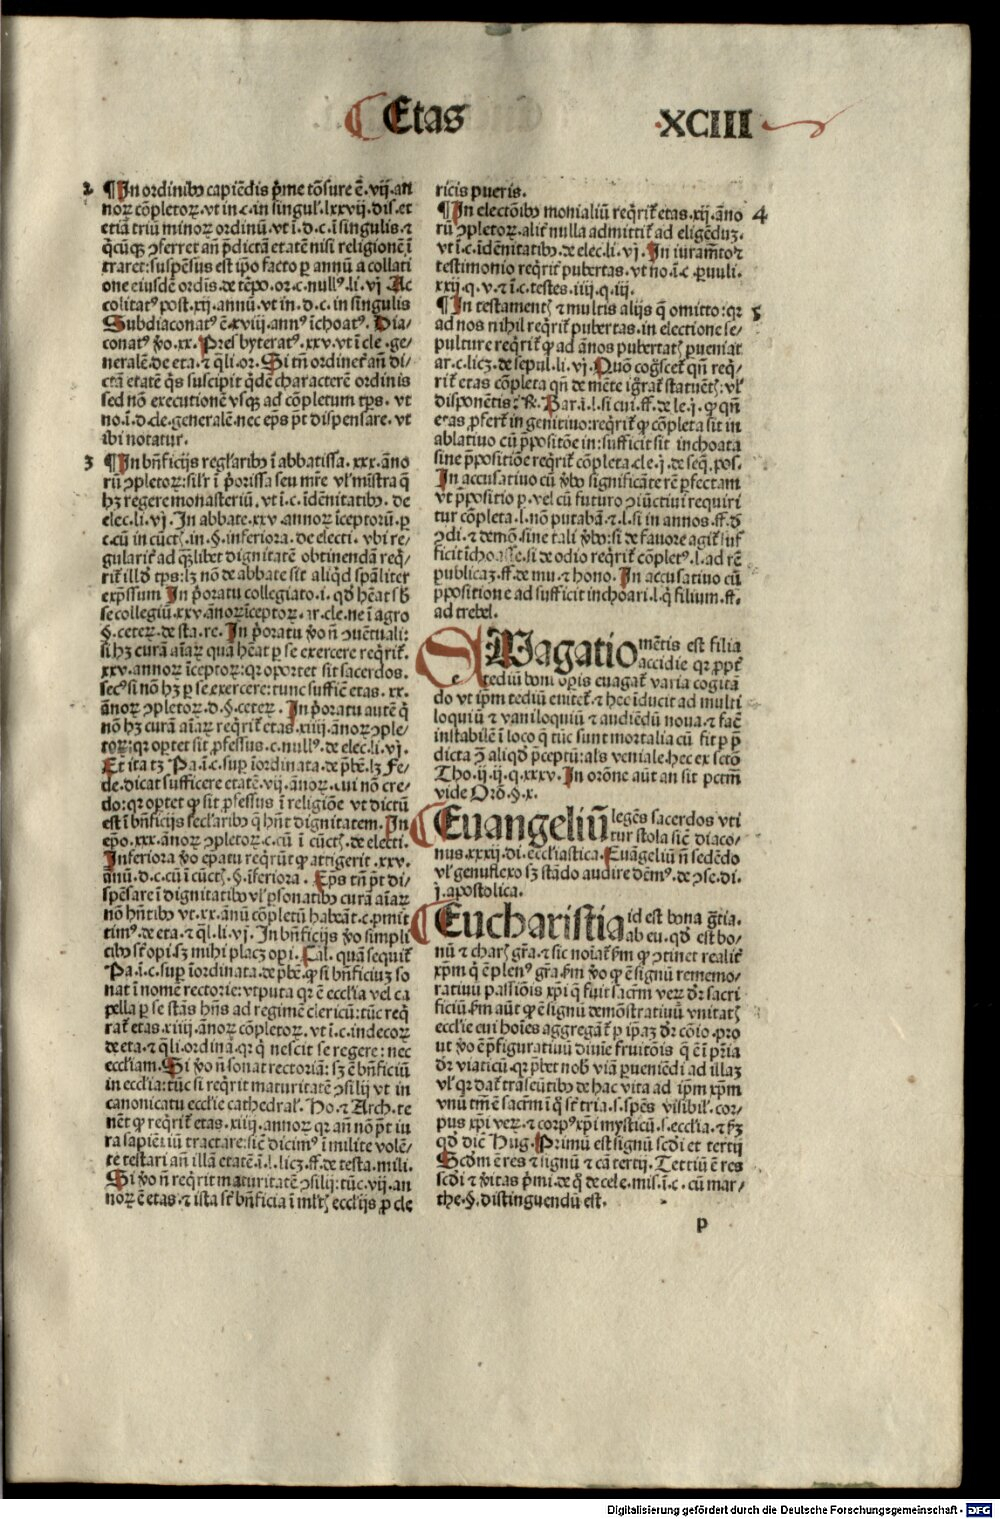 Etas
·XCIII
2 ¶In ordinibꝰ capiēdis p̄me tōsure ē.vij.an
noꝝ cōpletoꝝ.vt in.c.in singul̓.lxxvij.dis.et
etiā triū minoꝝ ordinū.vt ī.d.c.ī singulis.⁊
q̄cūqꝫ ꝯferret an̄ p̄dictā etatē nisi religionē ī
traret:suspēsus est ip̄o facto ꝑ annū a collati
one eiusdē ordīs.de tēpo.or.c.null̓.li.vj Ac
colitatꝰ post.xij.annū.vt in.d.c.in singulis
Subdiaconatꝰ ē.xviij.annꝰ īchoatꝰ.Dia⸗
conatꝰ v̄o.xx.Presbyteratꝰ.xxv.vt ī cle.ge⸗
neralē.de eta.⁊ q̄li.or.Si tn̄ ordinet̄ an̄ di⸗
ctā etatē q̄s suscipit qdē characterē ordinis
sed non executionē vsqꝫ ad completum tp̄s.vt
no.ī.d.cle.generalē.nec ep̄s pt̄ dispensare.vt
ibi notatur.
3 ¶In bn̄ficijs regl̓aribꝰ ī abbatissa.xxx.āno
rū ꝯpletoꝝ:sil̓r ī p̄orissa seu mr̄e vl̓ mīstra q̄
hꝫ regere monasteriū.vt ī.c.īdēnitatibꝰ.de
elec.li.vj.In abbate.xxv.annoꝝ īceptorū.ꝑ
c.cū in cūct̄.in.§.inferiora.de electi.vbi re⸗
gularit̄ ad qꝫlibet dignitatē obtinendā req̄⸗
rit̄ illd̓ tp̄s:lꝫ nō de abbate sit aliqd̓ spāliter
exp̄ssum In p̄oratu collegiato.i.qd̓ hēat s̄b
se collegiū.xxv.ānoꝝ īceptoꝝ.ar.cle.ne ī agro
§.ceteꝝ.de sta.re.In p̄oratu v̄o n̄ ꝯuētuali:
si hꝫ curā aīaꝝ quā hēat ꝑ se exercere req̄rit̄.
xxv.annoꝝ īceptoꝝ:qꝛ oportet sit sacerdos.
secꝰ si nō hꝫ ꝑ se exercere:tunc suffic̄ etas.xx.
ānoꝝ ꝯpletoꝝ.d.§.ceteꝝ.In p̄oratu autē q̄
nō hꝫ curā aīaꝝ req̄rit̄ etas.xiiij.ānoꝝ ꝯple⸗
toꝝ:qꝛ oꝑtet sit ꝓfessus.c.nullꝰ.de elec.li.vj.
Et ita tꝫ Pa.ī.c.suꝑ īordinata.de p̄bē.lꝫ Fe⸗
de.dicat sufficere etatē.vij.ānoꝝ.cui nō cre⸗
do:qꝛ oꝑtet ꝙ sit ꝓfessus ī religiōe vt dictū
est ī bn̄ficijs secl̓aribꝰ q̄ hn̄t dignitatem.In
ep̄o.xxx.ānoꝝ ꝯpletoꝝ.c.cū ī cūct̄.de electi.
Inferiora v̄o ep̄atu req̄rūt ꝙ attigerit.xxv.
anū.d.c.cū ī cūct̄.§.īferiora.Ep̄s tn̄ pt̄ di⸗
spēsare ī dignitatibꝰ vl̓ ꝑsonatibꝰ curā aīaꝝ
nō hn̄tibꝰ vt.xx.ānū cōpletū habeāt.c.ꝑmit
timꝰ.de eta.⁊ ql̓.li.vj.In bn̄ficijs v̄o simpli
cibꝰ st̄ opi.sꝫ mihi placꝫ opi.Cal.quā sequit̄
Pa.ī.c.suꝑ īordinata.de p̄bē.ꝙ si bn̄ficiuꝫ so
nat ī nomē rectorie:vtputa qꝛ ē ecclīa vel ca
pella ꝑ se stās hn̄s ad regimē clericū:tūc req̄
rat̄ etas.xiiij.ānoꝝ cōpletoꝝ.vt ī.c.indecoꝝ
de eta.⁊ q̄li.ordinā.qꝛ q̄ nescit se regere:nec
ecclīam.Si v̄o n̄ sonat rectoriā:sꝫ ē bn̄ficiū
in ecclīa:tūc si req̄rit maturitatē ꝯsilij vt in
canonicatu ecclīe cathedral̓.Ho.⁊ Arch.te
nēt ꝙ req̄rit̄ etas.xiiij.annoꝝ qꝛ an̄ nō pn̄t iu
ra sapiētiū tractare:sic̄ dicimꝰ ī milite volē⸗
te testari an̄ illā etatē.ī.l.licꝫ.ff.de testa.mili.
Si v̄o n̄ req̄rit maturitatē ꝯsilij:tūc.vij.an
noꝝ ē etas.⁊ ista st̄ bn̄ficia ī ml̓t̄ ecclijs ꝓ cle
ricis pueris.
¶In electōibꝰ monialiū req̄rit̄ etas.xij.āno 4
rū ꝯpletoꝝ.alit̄ nulla admittit̄ ad eligēduꝫ.
vt ī.c.īdēnitatibꝰ.de elec.li.vj.In iuramēto ⁊
testimonio req̄rit̄ pubertas.vt no.ī.c.ꝑuuli.
xxij.q.v.⁊ ī.c.testes.iiij.q.iij.
¶In testament̄ ⁊ multis alijs q̄ omitto:qꝛ 5
ad nos nihil req̄rit̄ pubertas.in electione se⸗
pulture req̄rit̄ ꝙ ad ānos pubertat̄ ꝑueniat
ar.c.licꝫ.de sepul.li.vj.Quō cog̓scet̄ qn̄ req̄⸗
rit̄ etas cōpleta qn̄ de mēte ig̓rat̄ statuēt̄:vl̓
disponētis:℞.Bar.ī.l.si cui.ff.de le.j.ꝙ qn̄
etas ꝓfert̄ in genitiuo:req̄rit̄ ꝙ cōpleta sit in
ablatiuo cū p̄positōe in:sufficit sit inchoata
sine p̄positiōe req̄rit̄ cōpleta.cle.j.de seq̄.pos.
In accusatiuo cū v̄bo significāte rē ꝑfectam
vt p̄positio ꝑ.vel cū futuro ꝯiūctiui requiri
tur cōpleta.l.nō putabā.⁊.l.si in annos.ff.d̓
ꝯdi.⁊ demō.sine tali v̄bo:si de fauore agit̄ suf
ficit īchoasse.si de odio req̄rit̄ cōpletꝰ.l.ad rē
publicaꝫ.ff.de mu.⁊ hono.In accusatiuo cū
p̄positione ad sufficit inchoari.l.q̄ filium.ff.
ad trebel.
EVagatio mētis est filia
accidie qꝛ ꝓpt̄
tediū boni oꝑis euagat̄ varia cogitā
do vt ip̄m tediū euitet̄.⁊ hec īducit ad multi
loquiū ⁊ vaniloquiū ⁊ audiēdū noua.⁊ fac̄
instabilē ī loco q̄ tūc sunt mortalia cū fit ꝑ p̄
dicta ꝯ̄ aliqd̓ p̄ceptū:als veniale.hec ex scto
Tho.ij.ij.q.xxxv.In orōne aūt an sit pctm̄
vide Orō.§.x.
Euangeliū legēs sacerdos vti
tur stola sic̄ diaco⸗
nus.xxxij.di.ecclīastica.Euāgeliū n̄ sedēdo
vl̓ genuflexo sꝫ stādo audire dēmꝰ.de ꝯse.di.
j.apostolica.
Eucharistia id est bona gr̄a.
ab eu.qd̓ est bo⸗
nū ⁊ char̄ gr̄a.⁊ sic noīat̄ fm̄ ꝙ ꝯtinet realit̄
xp̄m q̄ ē plenꝰ gr̄a.fm̄ v̄o ꝙ ē signū rememo⸗
ratiuū passiōis xp̄i q̄ fuit sacm̄ veꝝ dr̄ sacri
ficiū.fm̄ aūt ꝙ ē signū demōstratiuū vnitat̄
ecclīe cui hoīes aggregāt̄ ꝑ ip̄aꝫ dr̄ cōio.pro
ut v̄o ē p̄figuratiuū diuīe fruitōis q̄ ē ī pr̄ia
dr̄ viaticū.qꝛ p̄bet nob̄ viā ꝑueniēdi ad illaꝫ
vl̓ qꝛ dat̄ trāseūtibꝰ de hac vita ad ip̄m xp̄m
vnū tm̄ ē sacm̄ ī q̄ st̄ tria.s.sp̄es visibil̓.cor⸗
pus xp̄i veꝝ.⁊ corpꝰ xp̄i mysticū.s.ecclīa.⁊ fꝫ
qd̓ dic̄ Hug.Primū est signū scd̓i et tertij
Scd̓m ē res ⁊ signū ⁊ cā tertij.Tertiū ē res
scd̓i ⁊ v̄itas p̄mi.de q̄ de cele.mis.ī.c.cū mar⸗
the.§.distinguendū est.
p
Digitalisierung gefördert durch die Deutsche Forschungsgemeinschaft - DFG